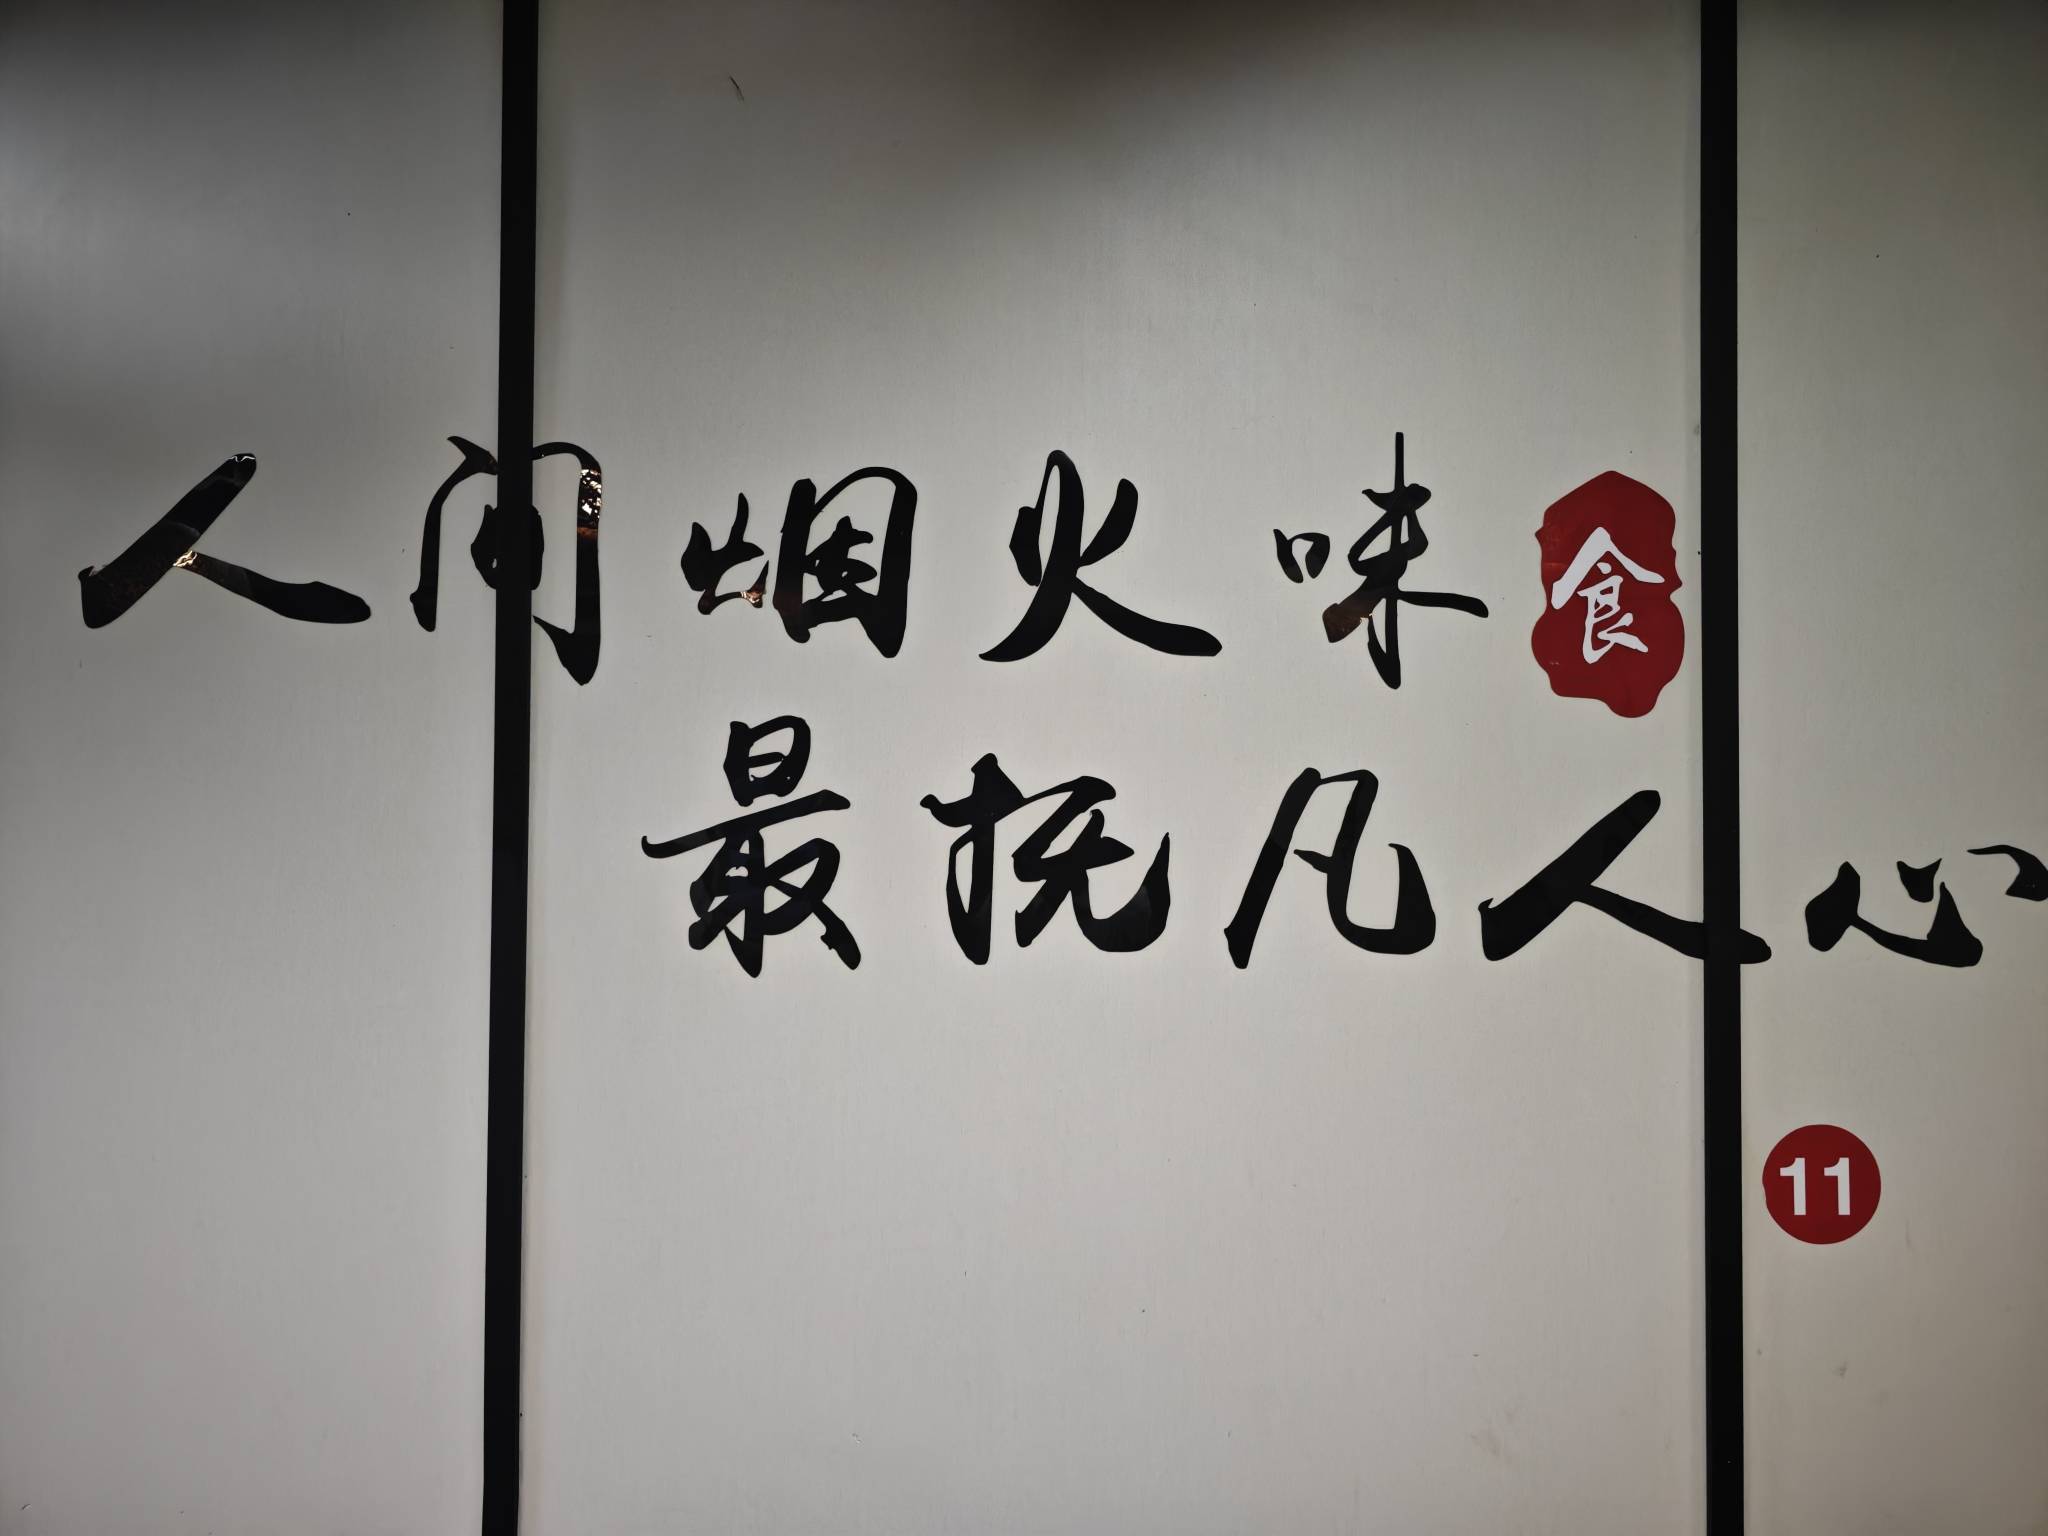 人间烟火味 食
最抚凡人心
11